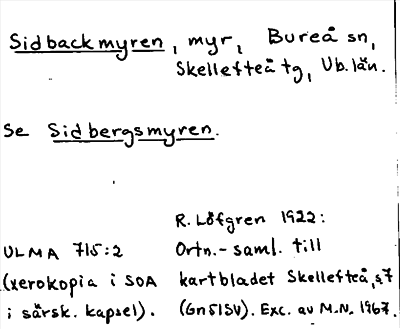 Sidbackmyren, myr, Bureå sn,
Skellefteå tg, Vb. län.
Se Sidbergsmyren.
R. Löfgren 1922:
ULMA 715:2 Ortn.-saml. till
(xerokopia i SOA kartbladet Skellefteå, s7
i särsk. kapsel). (Gn51SV). Exc. av M.N. 1967.